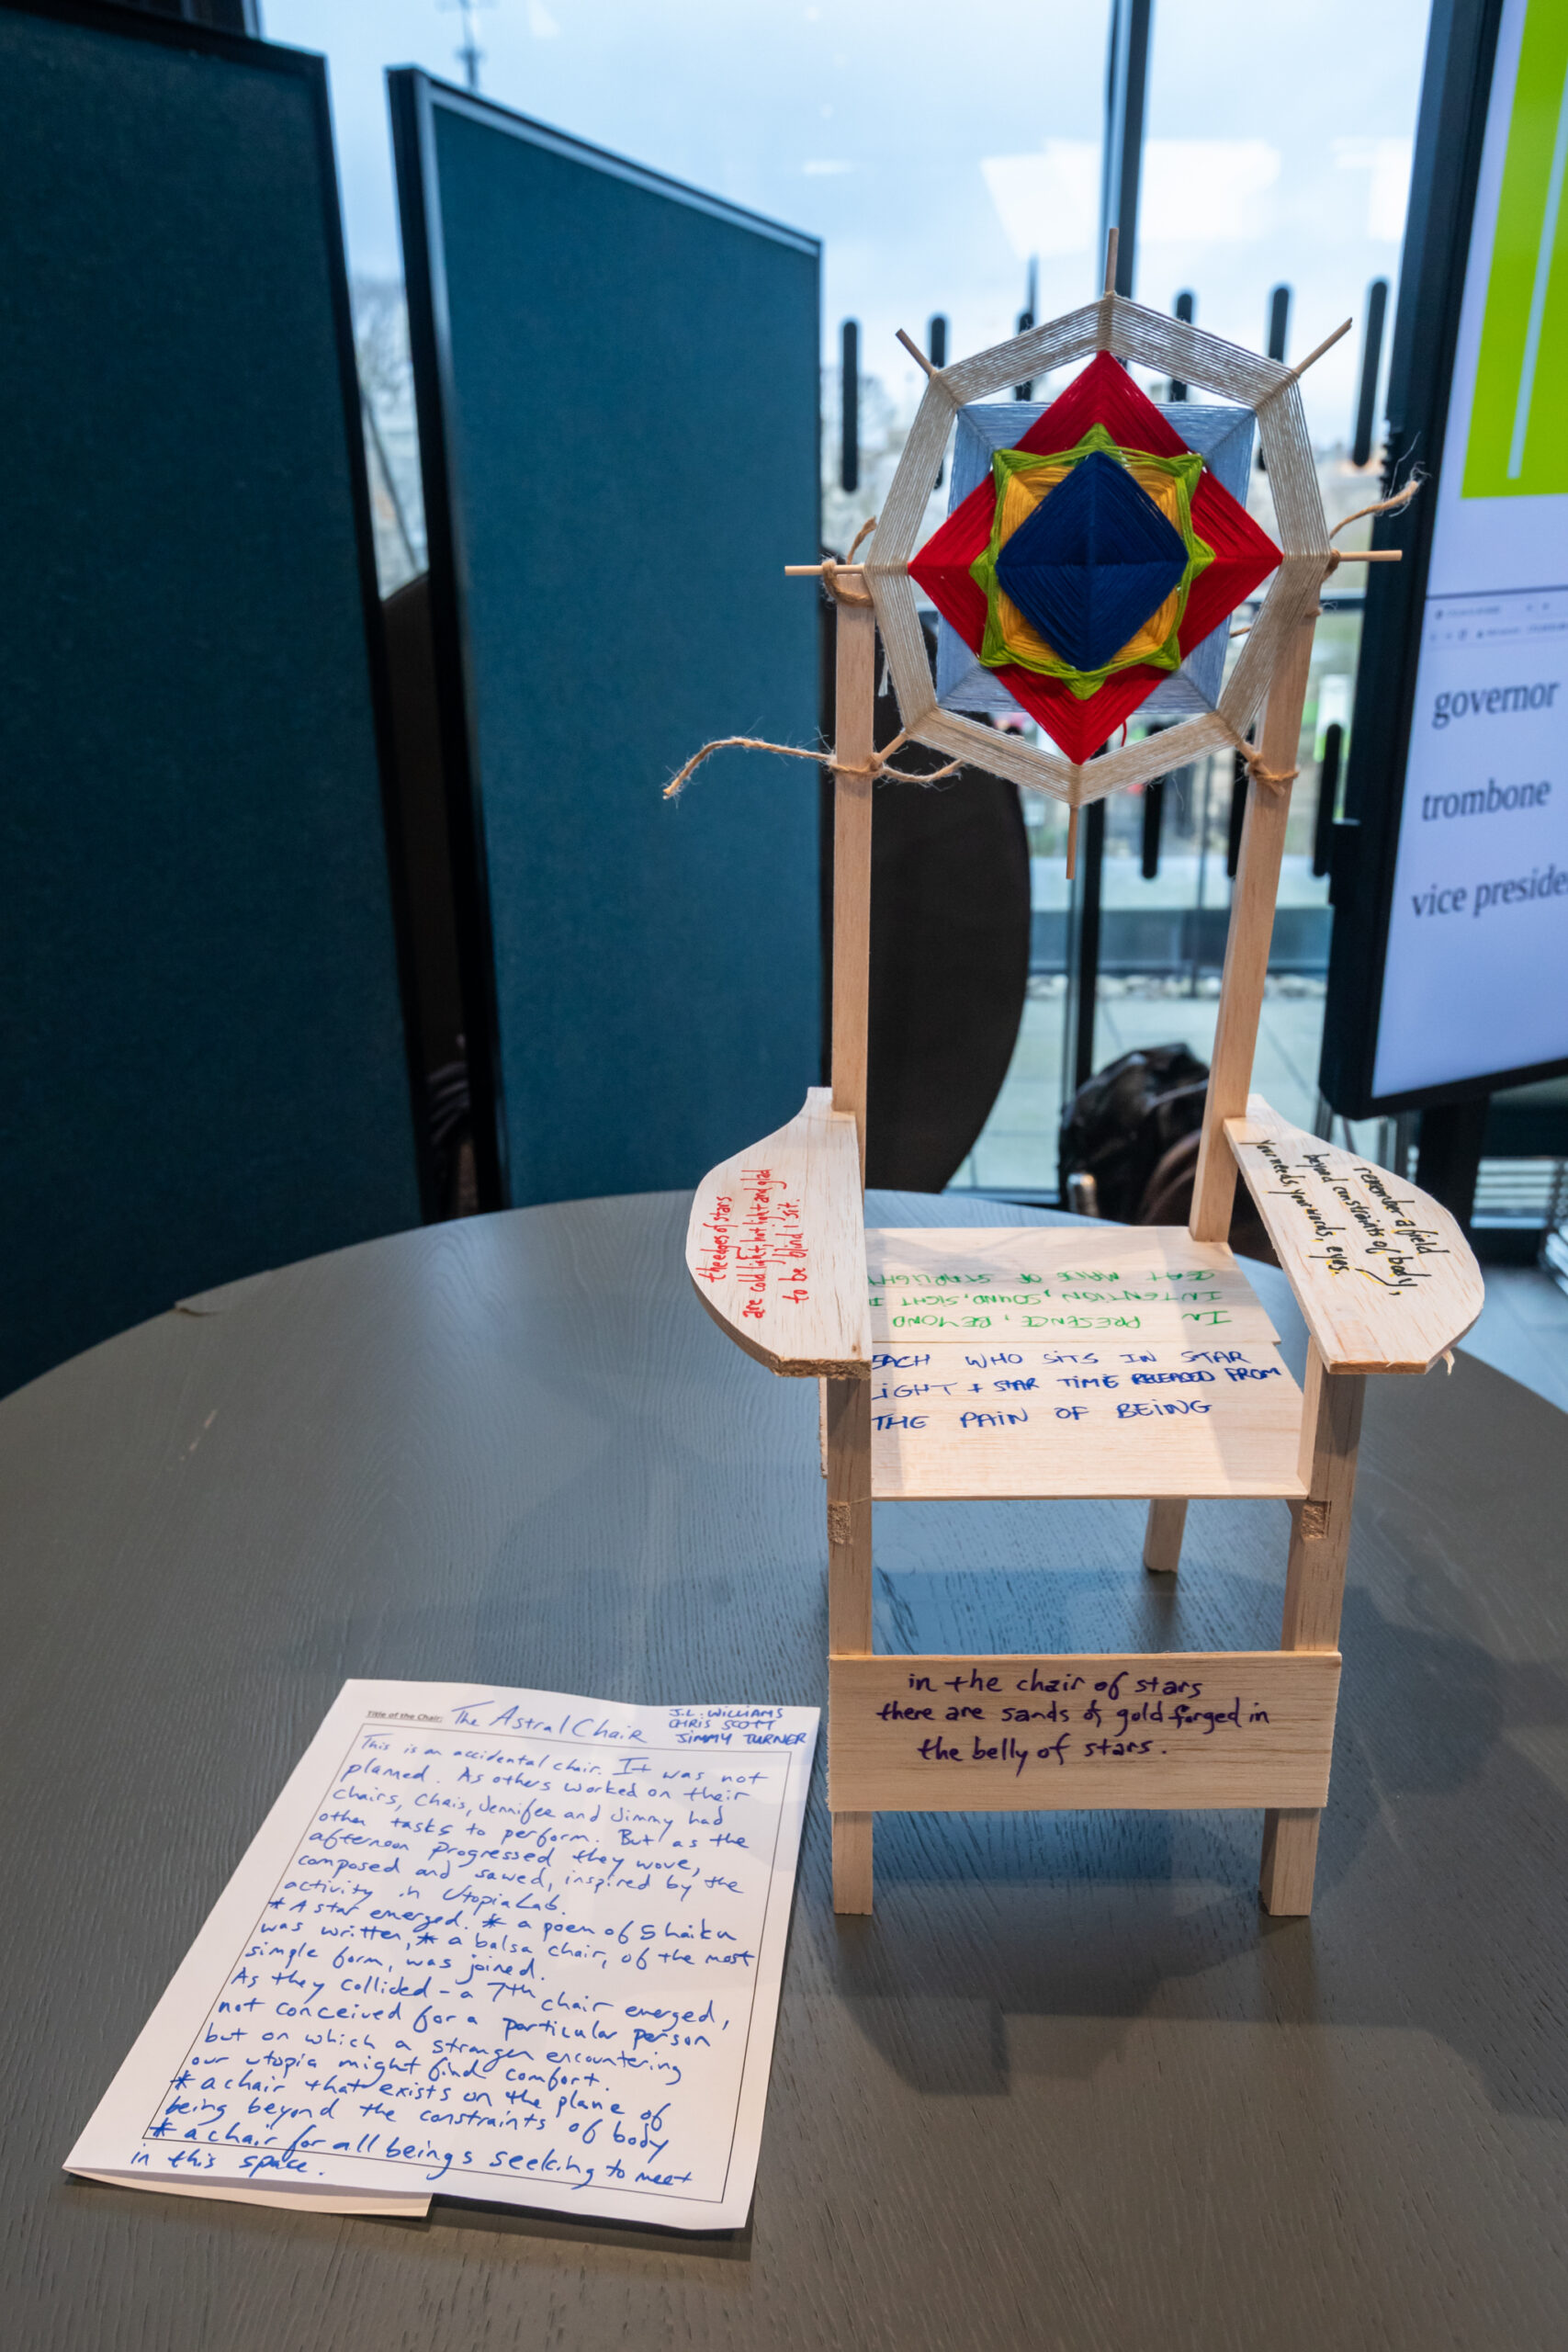 governor
trombone
vice preside
the edges of stars
are cold light, hot light and glad
to be blind I sit.
remember a field
beyond constraints of body,
your needs, your words, eyes.
IN PRESENCE, BEYOND
INTENTION, SOUND, SIGHT I
SAT MADE OF STARLIGHT
EACH WHO SITS IN STAR
LIGHT + STAR TIME RELEASED FROM
THE PAIN OF BEING
in the chair of stars
there are sands of gold forged in
the belly of stars.
Title of the Chair: The Astral Chair
J.L. WILLIAMS
CHRIS SCOTT
JIMMY TURNER
This is an accidental chair. It was not
planned. As others worked on their
chairs, Chris, Jennifer and Jimmy had
other tasks to perform. But as the
afternoon progressed they wove,
composed and sawed, inspired by the
activity in UtopiaLab.
* A star emerged. * a poem of 5 haiku
was written, * a balsa chair, of the most
simple form, was joined.
As they collided - a 7th chair emerged,
not conceived for a particular person
but on which a stranger encountering
our utopia might find comfort.
* a chair that exists on the plane of
being beyond the constraints of body
* a chair for all beings seeking to meet
in this space.